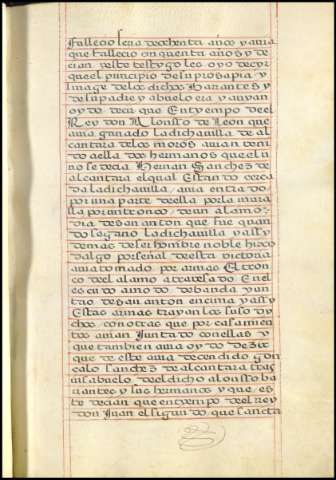 fallecio sera de ochenta años y auia
que fallecio cinquenta años y de
cian y este testygo les oyo deçir
que el principio de su prosapia y
linage de los dichos barantes y
de su padre y abuelo era y auyan
oydo decir que En tyempo del
Rey don Alonsso de leon que
auia ganado la dicha villa de al
cantara de los moros auian beni
do a ella dos hermanos que el u
no se decia Hernan Sanchez de
alcantara el qual Estando cerca
da la dicha villa / auia entrado
por una parte della por la mura
lla por un tronco / de un alamo /
dia de san anton que fue quan
do se gano la dicha villa y assy
demas de ser hombre noble hijo
dalgo por señal de esta victoria
auia tomado por armas El tron
co del alamo atrauesado En el
escudo a modo de banda y un
tao de san anton encima y assy
Estas armas trayan los suso dy
chos / con otras que por casamien
tos auian Juntado con ellas y
que tambien auia oydo deçir
que de este auia decendido gon
calo sanchez de alcantara tras
uisabuelo del dicho alonsso ba
rantes y sus hermanos y que / es
te decian que en tyempo del rey
don Juan el segundo que sancta